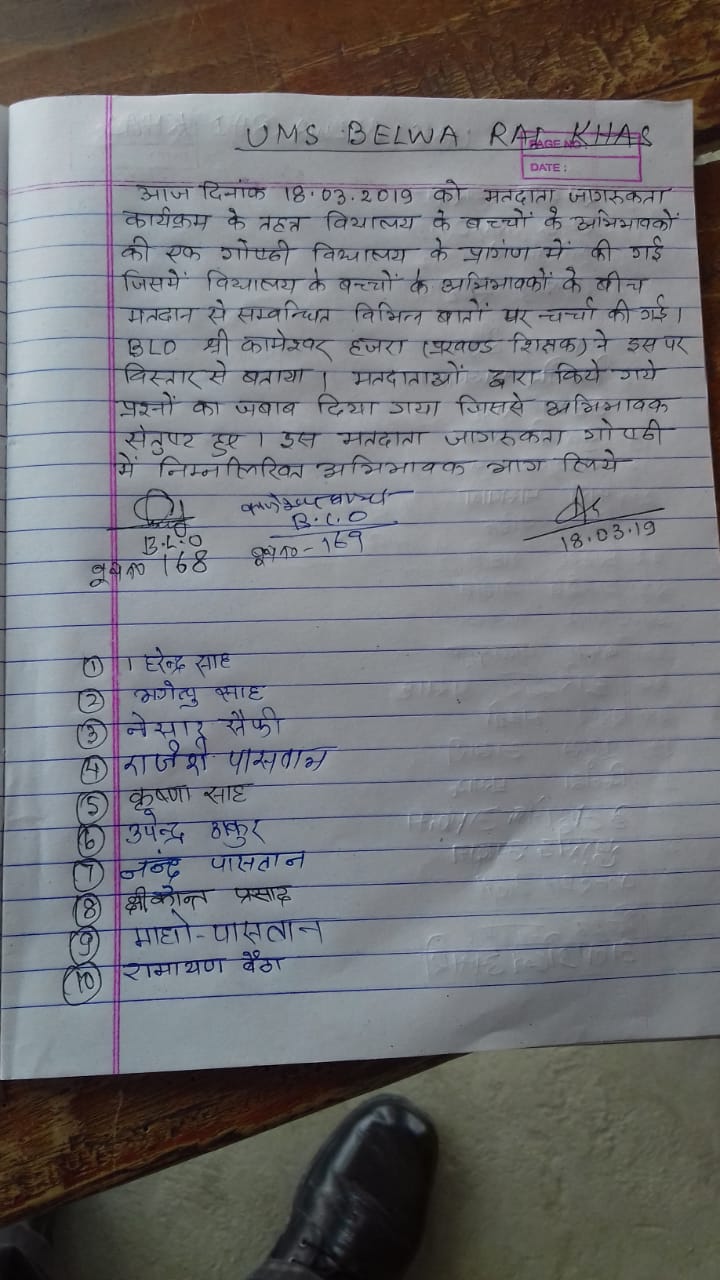 UMS BELWA RAI KHAS
PAGE NO.
DATE:
आज दिनांक 18.03.2019 को मतदाता जागरुकता
कार्यक्रम के तहत विद्यालय के बच्चों के अभिभावकों
की एक गोष्ठी विद्यालय के प्रागंण में की गई
जिसमें विद्यालय के बच्चों के अभिभावकों के बीच
मतदान से सम्बन्धित विभिन्न बातों पर चर्चा की गई।
BLO श्री कामेश्वर हजरा (प्रखण्ड शिक्षक) ने इस पर
विस्तार से बताया। मतदाताओं द्वारा किये गये
प्रश्नों का जबाब दिया गया जिससे अभिभावक
संतुष्ट हुए। इस मतदाता जागरुकता गोष्ठी
में निम्नलिखित अभिभावक भाग लिये
B.L.O
B.L.O
18.03.19
बूथ न० 168
बूथ न० - 169
① हरेन्द्र साह
② साह
③ नेसार सैफी
④ राजेश पासवान
⑤ कृष्णा साह
⑥ उपेन्द्र ठाकुर
⑦ पासवान
⑧ श्रीकान्त प्रसाद
⑨ माधो-पासवान
⑩ रामायण बैठा